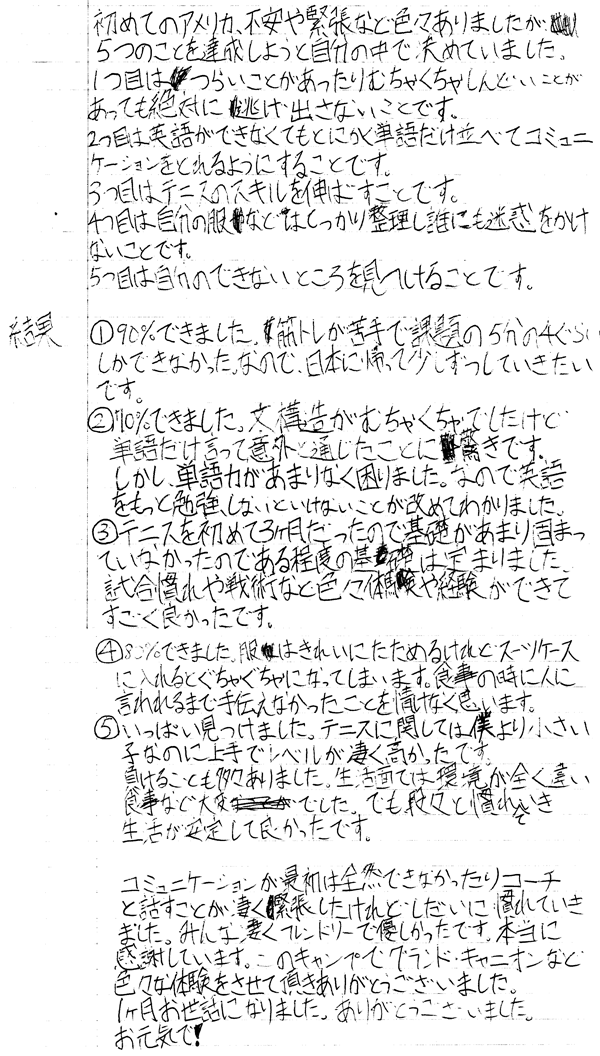 初めてのアメリカ、不安や緊張など色々ありましたが
5つのことを達成しようと自分の中で決めていました。
1つ目はつらいことがあったりむちゃくちゃしんどいことが
あっても絶対に逃げ出さないことです。
2つ目は英語ができなくてもとにかく単語だけ並べてコミュニ
ケーションをとれるようにすることです。
3つ目はテニスのスキルを伸ばすことです。
4つ目は自分の服などはしっかり整理し誰にも迷惑をかけ
ないことです。
5つ目は自分のできないところを見つけることです。
結果
①90%できました。筋トレが苦手で課題の5分の4ぐらい
しかできなかった。なので、日本に帰って少しずつしていきたい
です。
②70%できました。文構造がむちゃくちゃでしたけど
単語だけ言って意外と通じたことに驚きです。
しかし、単語力があまりなく困りました。なので英語
をもっと勉強しないといけないことが改めてわかりました。
③テニスを初めて3ヶ月だったので基礎があまり固まっ
ていなかったのである程度の基礎は定まりました。
試合慣れや戦術など色々体験や経験ができて
すごく良かったです。
④80%できました。服はきれいにたためるけれどスーツケース
に入れるとぐちゃぐちゃになってしまいます。食事の時に人に
言われるまで手伝えなかったことを情けなく思います。
⑤いっぱい見つけました。テニスに関しては僕より小さい
子なのに上手でレベルが凄く高かったです。
負けることも多々ありました。生活面では環境が全く違い
食事など大変でした。でも段々と慣れていき
生活が安定して良かったです。
コミュニケーションが最初は全然できなかったりコーチ
と話すことが凄く緊張したけれどしだいに慣れていき
ました。みんな凄くフレンドリーで優しかったです。本当に
感謝しています。このキャンプでグランド・キャニオンなど
色々な体験をさせて頂きありがとうございました。
1ヶ月お世話になりました。ありがとうございました。
お元気で!